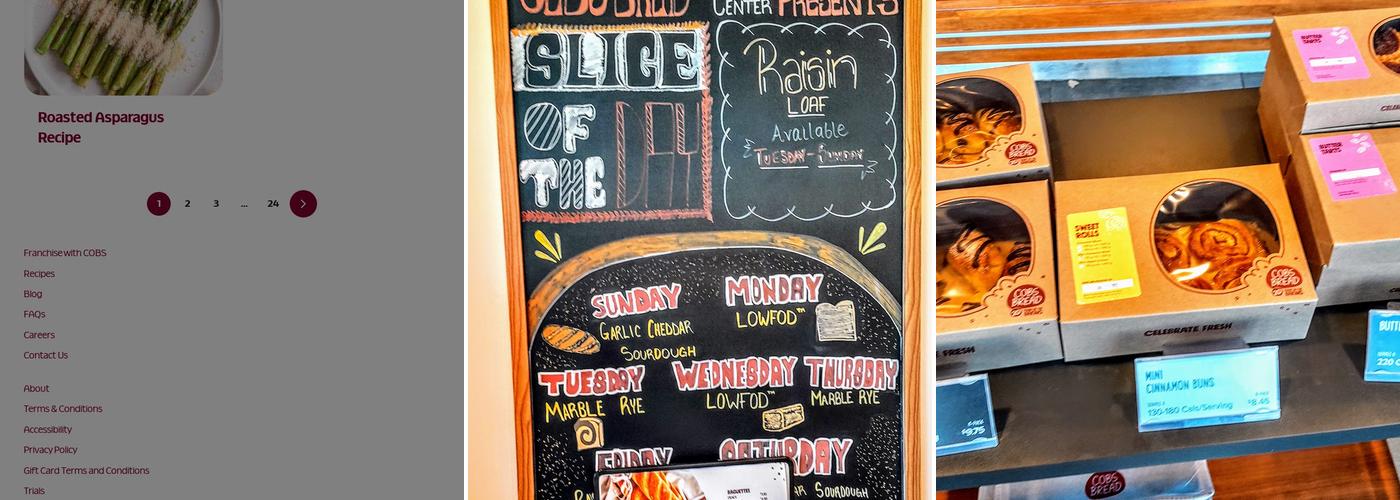 Roasted Asparagus
Recipe
1 2 3 ... 24
Franchise with COBS
Recipes
Blog
FAQs
Careers
Contact Us
About
Terms & Conditions
Accessibility
Privacy Policy
Gift Card Terms and Conditions
Trials
CENTER PRESENTS
SLICE
OF
THE
DAY
Raisin
LOAF
Available
TUESDAY - SUNDAY
SUNDAY
GARLIC CHEDDAR
SOURDOUGH
MONDAY
LOWFOD™
TUESDAY
MARBLE RYE
WEDNESDAY
LOWFOD™
THURSDAY
MARBLE RYE
FRIDAY
SATURDAY
SOURDOUGH
BAGUETTES
BUTTER
TARTS
BUTTER
TARTS
COBS
BREAD
SWEET
ROLLS
COBS
BREAD
COBS
BREAD
CELEBRATE FRESH
FRESH
MINI
CINNAMON BUNS
130-180 Cals/Serving
6-PACK
$8.45
$9.75
COBS
BREAD